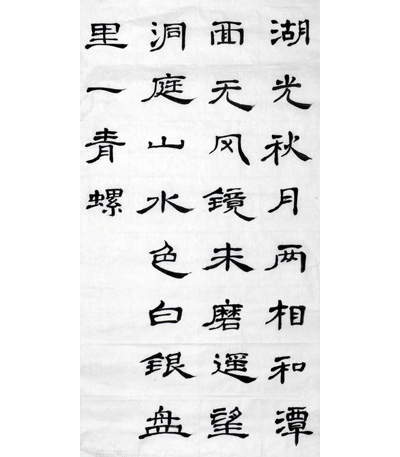 湖光秋月两相和潭
面无风镜未磨遥望
洞庭山水色白银盘
里一青螺